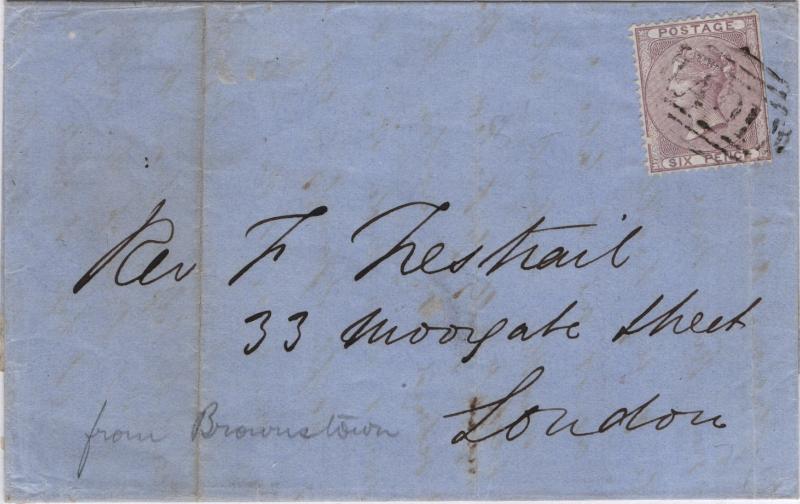 POSTAGE
SIX PENCE
Rev F Trestrail
33 Moorgate Street
London
from Brownstown